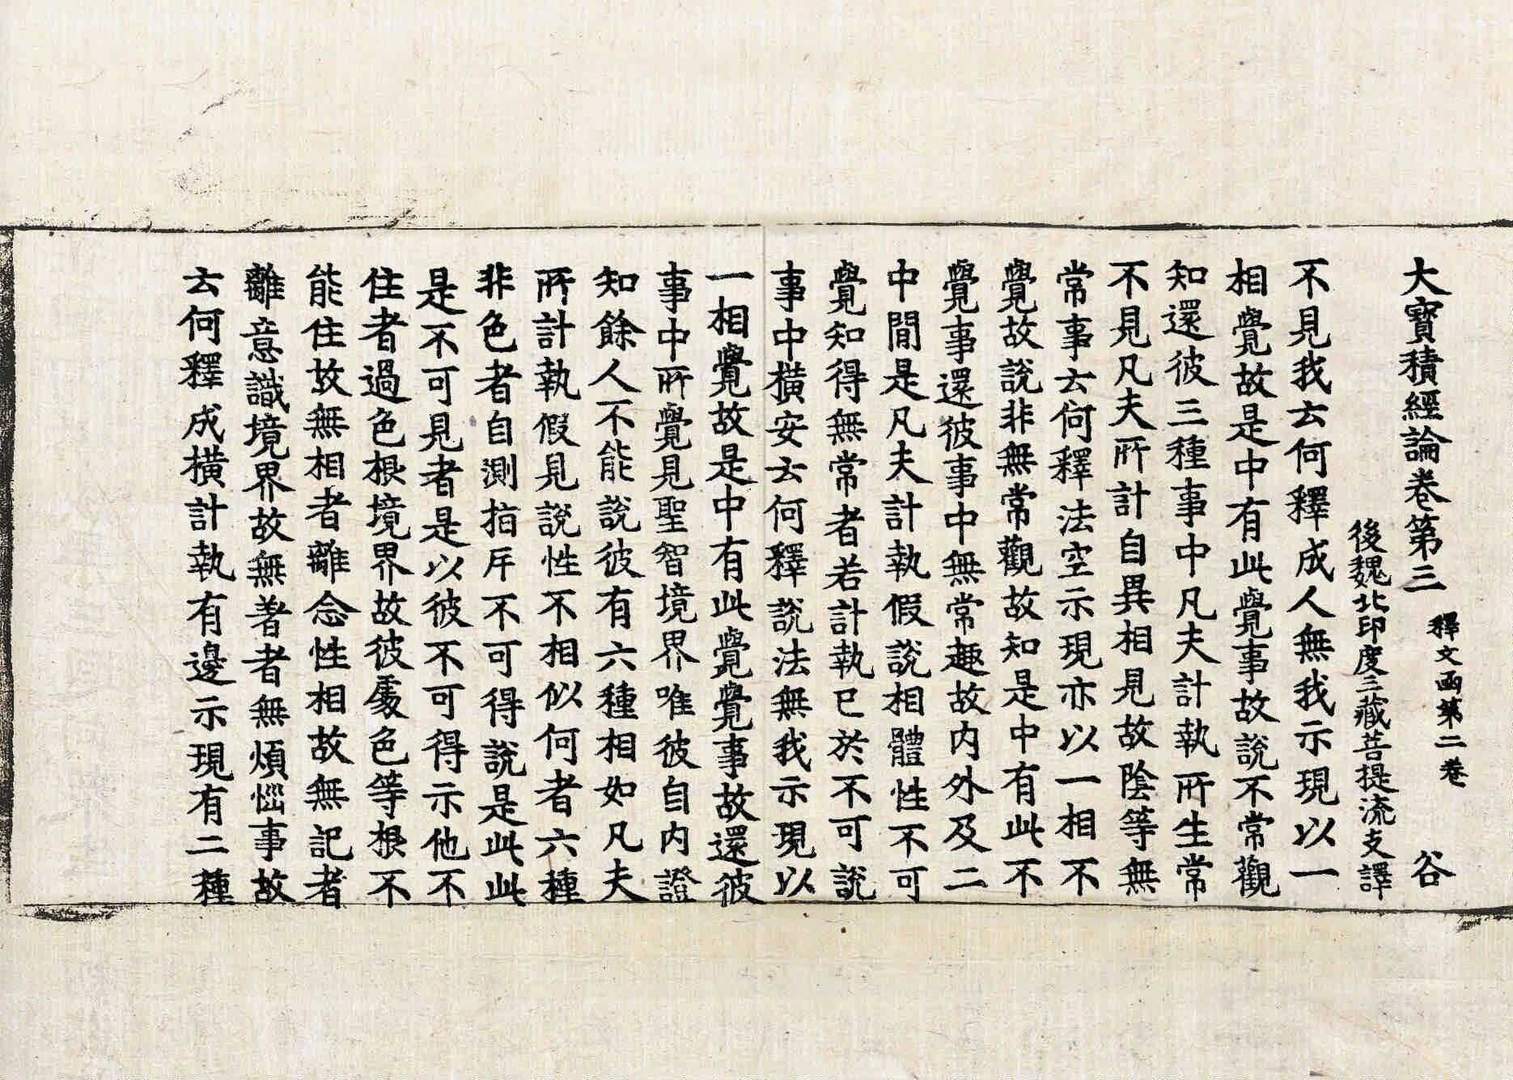 大寶積經論卷第三 釋文函第二卷 谷
後魏北印度三藏菩提流支譯
不見我去何釋成人無我示現以一
相覺故是中有此覺事故說不常觀
知還彼三種事中凡夫計執所生常
不見凡夫所計自異相見故陰等無
常事去何釋法空示現亦以一相不
覺故說非無常觀故知是中有此不
覺事還彼事中無常趣故内外及二
中間是凡夫計執假說相體性不可
覺知得無常者若計執已於不可說
事中橫安去何釋說法無我示現以
一相覺故是中有此覺覺事故還彼
事中所覺見聖智境界唯彼自内證
知餘人不能說彼有六種相如凡夫
所計執假見說性不相似何者六種
非色者自測指斥不可得說是此此
是不可見者是以彼不可得示他不
住者過色根境界故彼處色等根不
能住故無相者離念性相故無記者
離意識境界故無著者無煩惱事故
去何釋成橫計執有邊示現有二種